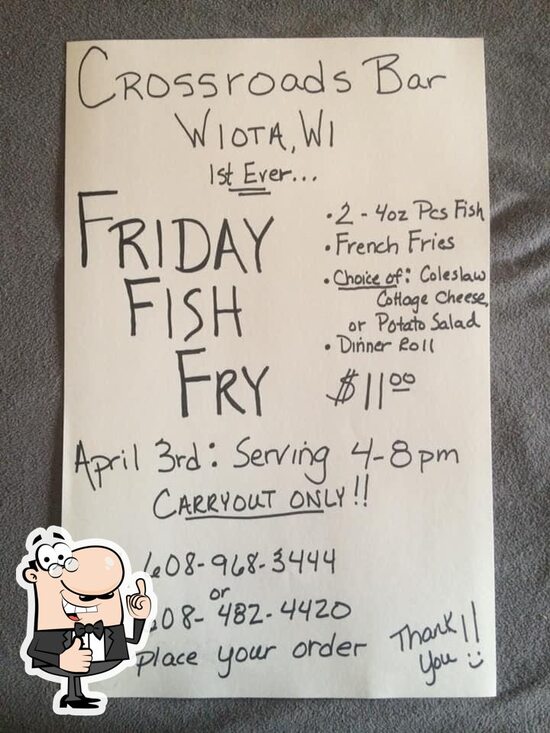 Crossroads Bar
Wiota, WI
1st Ever...
FRIDAY
FISH
FRY
• 2 - 4oz Pcs Fish
• French Fries
• Choice of: Coleslaw
Cottage Cheese,
or Potato Salad
• Dinner Roll
$11.00
April 3rd: Serving 4-8pm
CARRYOUT ONLY!!
608-968-3444
or
608-482-4420
place your order
Thank
You!!